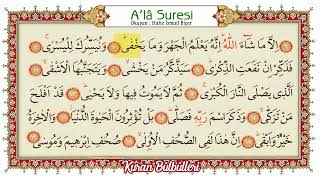 A'lâ Suresi
Okuyan : Hafız İsmail Biçer
اِلَّا مَا شَٓاءَ اللّٰهُۜ اِنَّهُ يَعْلَمُ الْجَهْرَ وَمَا يَخْفٰىۜ وَنُيَسِّرُكَ لِلْيُسْرٰىۚ
فَذَكِّرْ اِنْ نَفَعَتِ الذِّكْرٰىۜ سَيَذَّكَّرُ مَنْ يَخْشٰىۙ وَيَتَجَنَّبُهَا الْاَشْقٰىۙ
اَلَّذِي يَصْلَى النَّارَ الْكُبْرٰىۚ ثُمَّ لَا يَمُوتُ فِيهَا وَلَا يَحْيٰىۜ قَدْ اَفْلَحَ
مَنْ تَزَكّٰىۙ وَذَكَرَ اسْمَ رَبِّهِ فَصَلّٰىۜ بَلْ تُؤْثِرُونَ الْحَيٰوةَ الدُّنْيَاۘ وَالْاٰخِرَةُ
خَيْرٌ وَاَبْقٰىۜ اِنَّ هٰذَا لَفِي الصُّحُفِ الْاُو۫لٰىۙ صُحُفِ اِبْرٰهِيمَ وَمُوسٰى
Kuran Bülbülleri